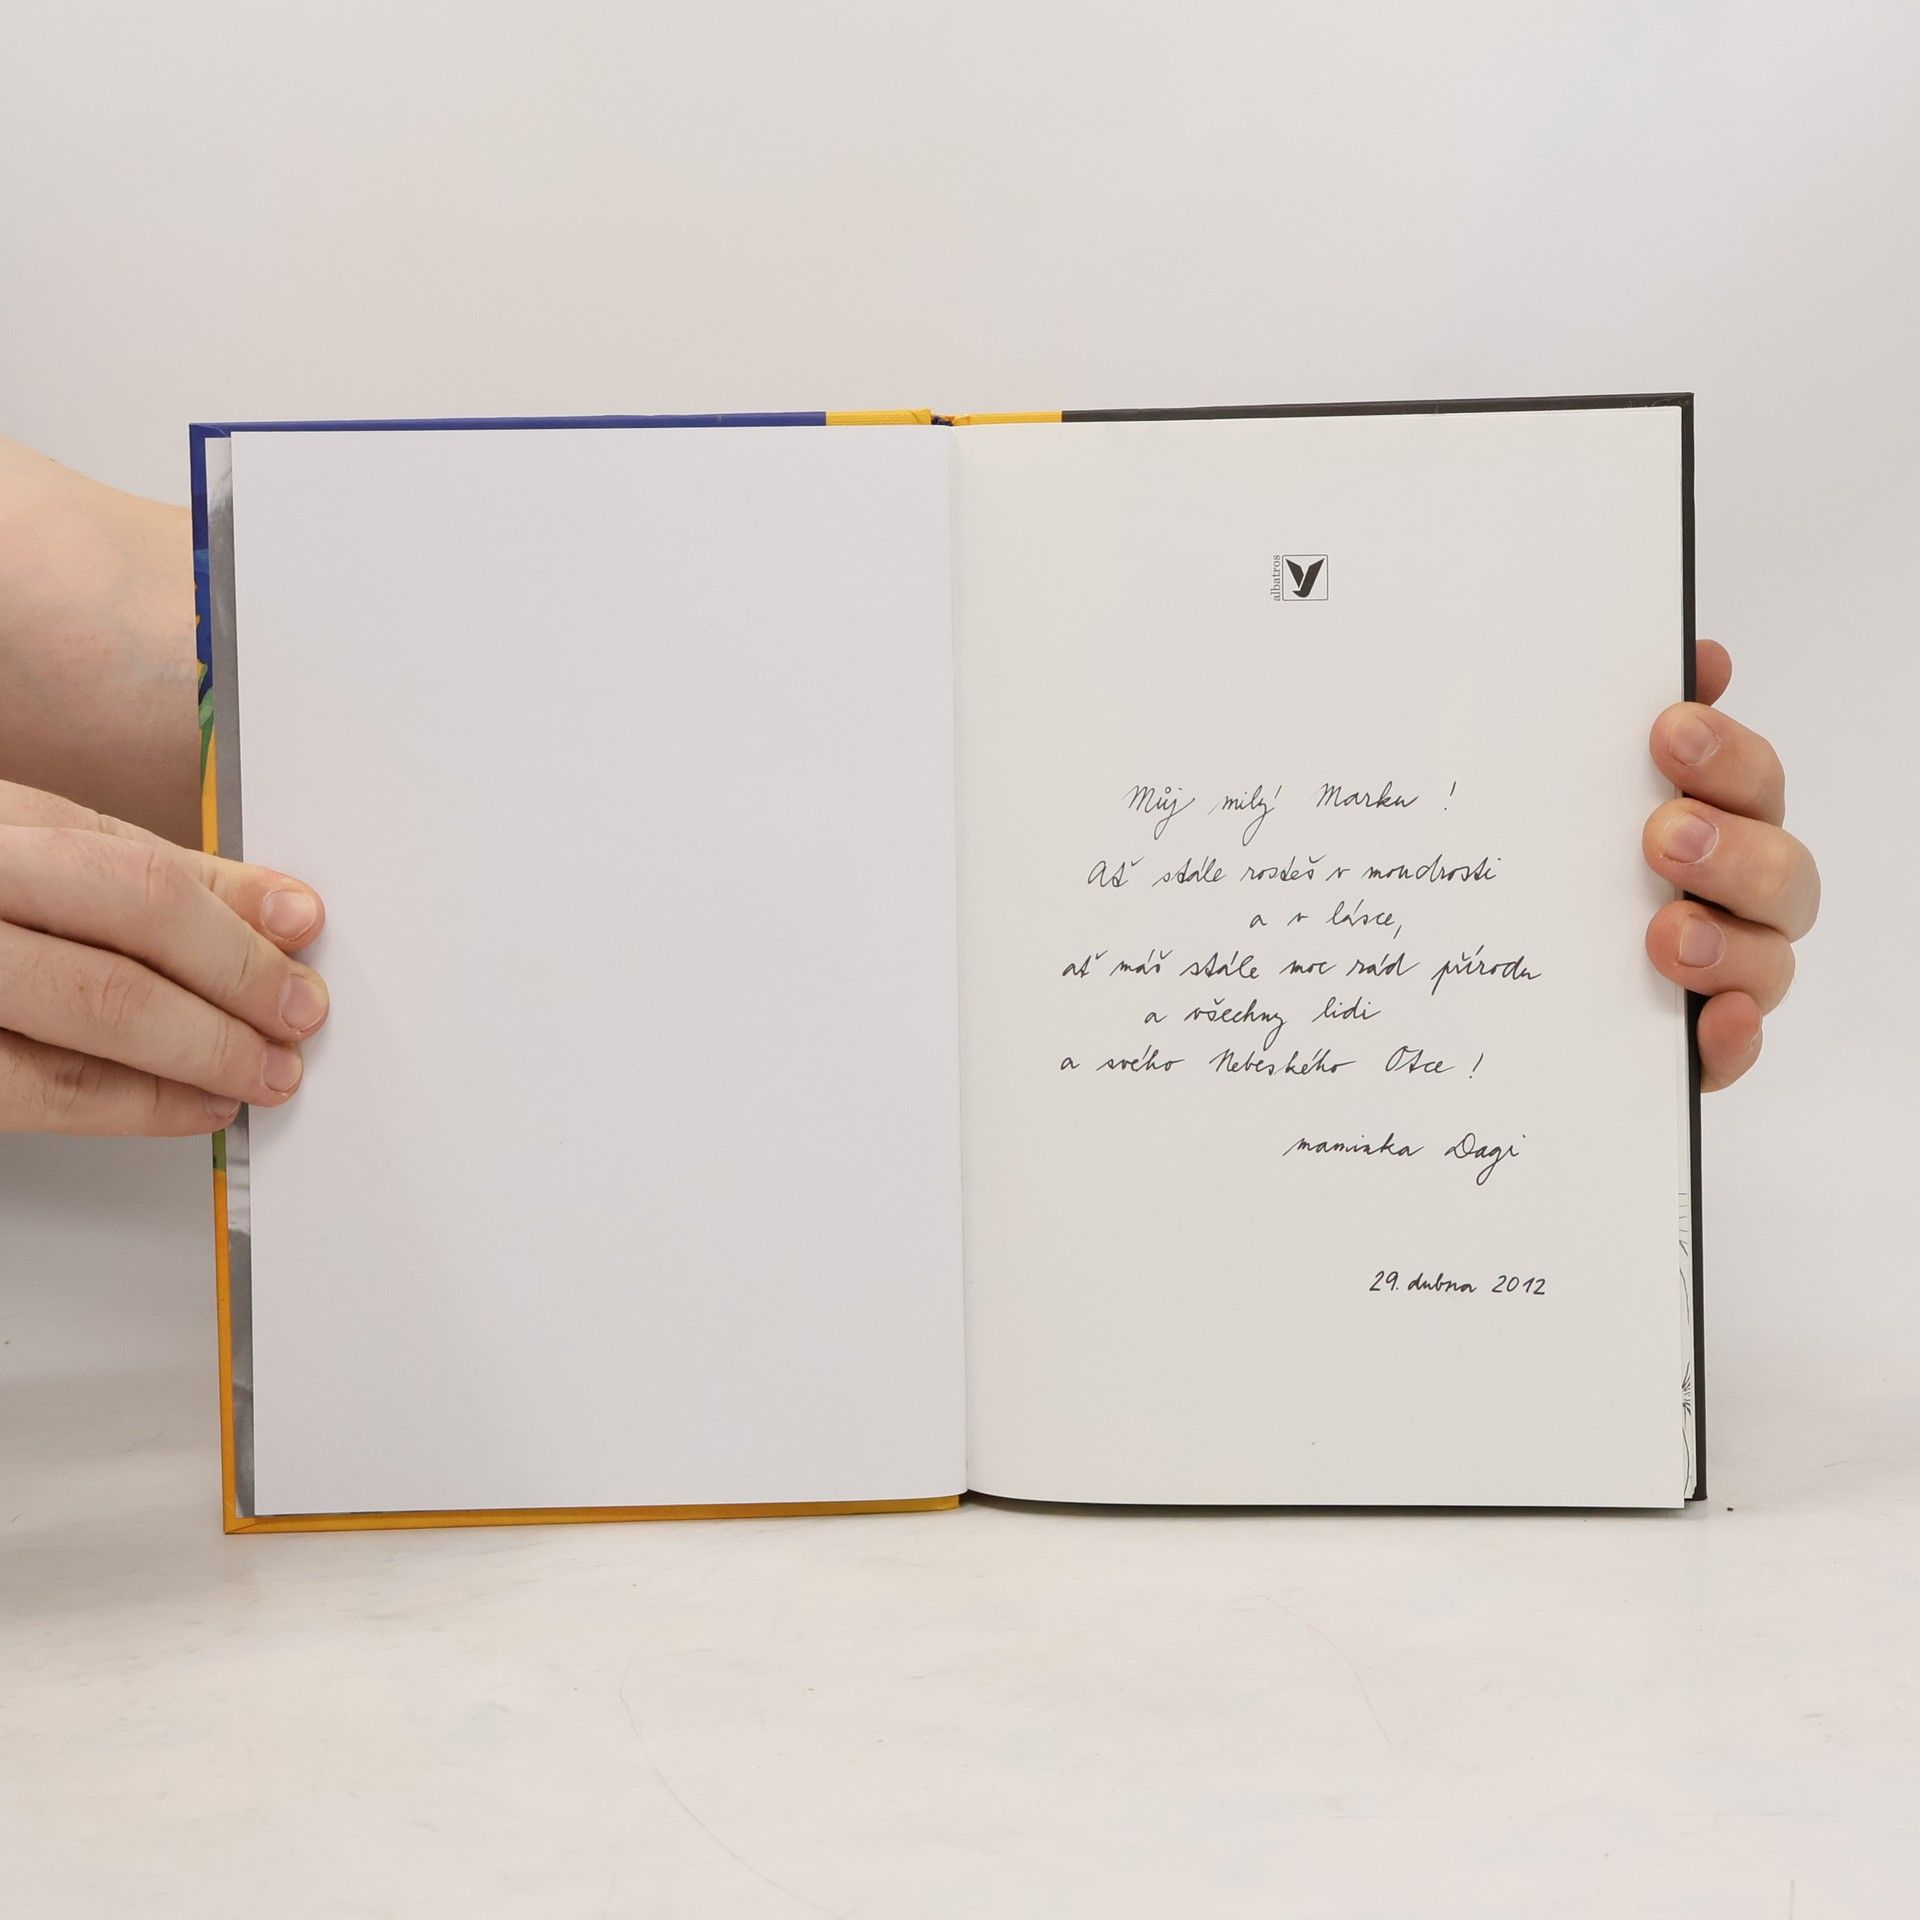 albatros
Můj milý Marku !
Ať stále rosteš v moudrosti
a v lásce,
ať máš stále moc rád přírodu
a všechny lidi
a svého Nebeského Otce !
maminka Dagi
29. dubna 2012